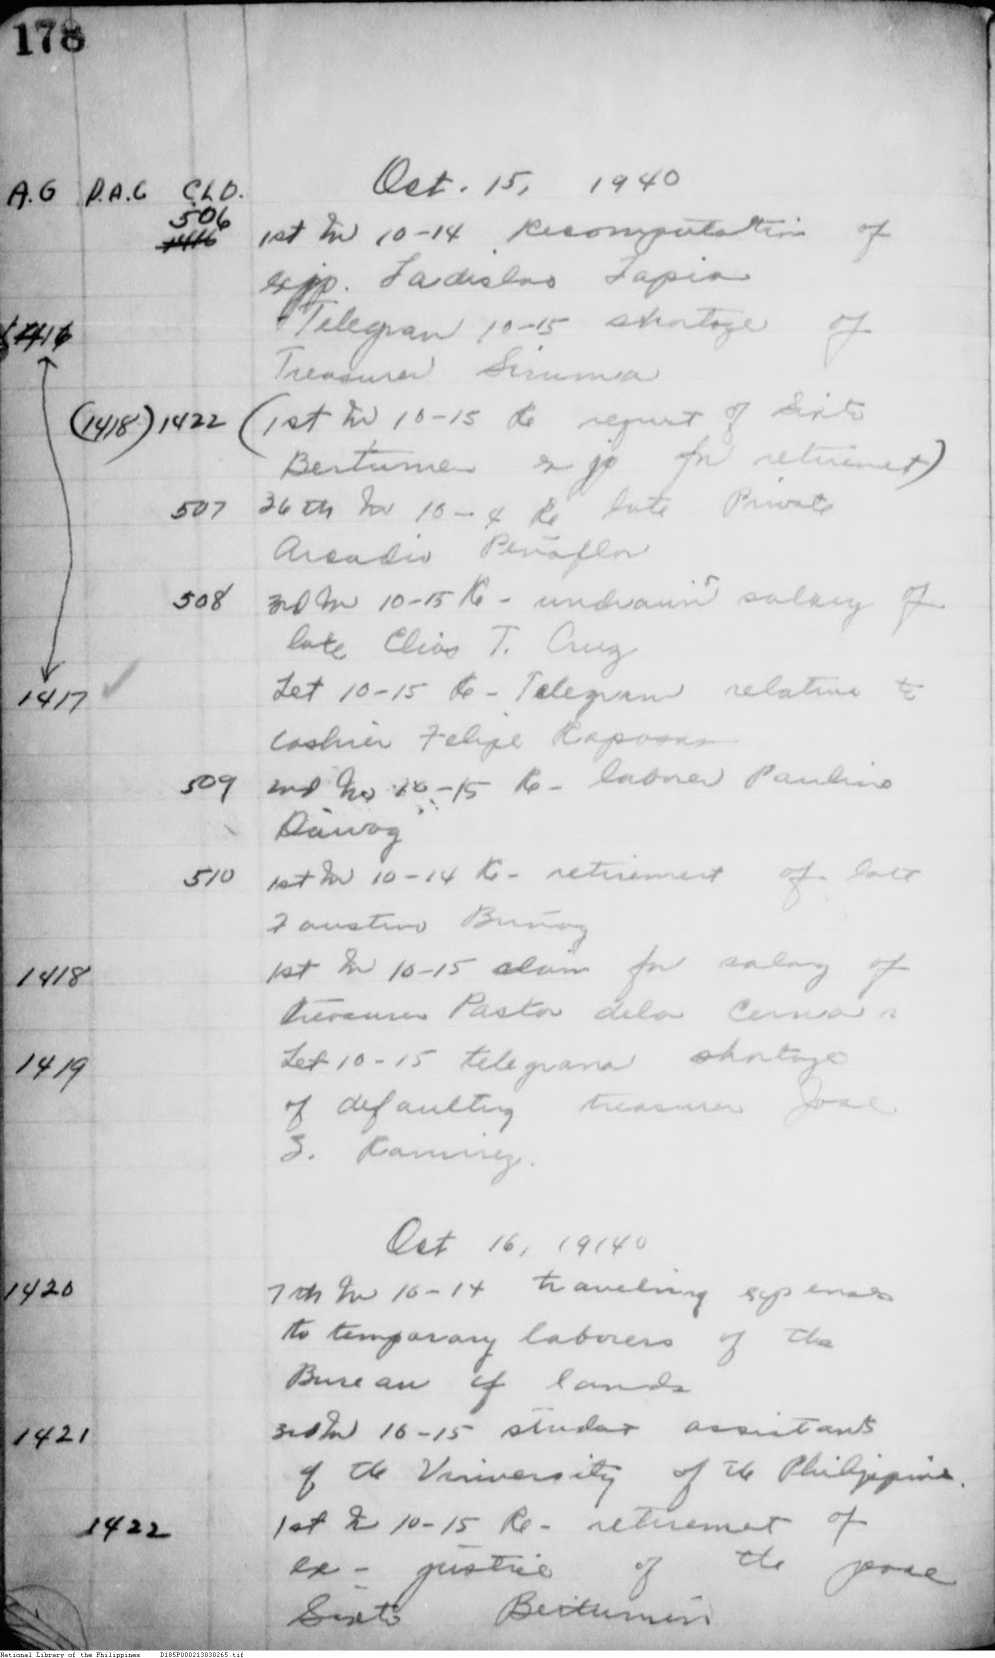 178
Oct. 15, 1940
A.G D.A.G C.L.D.
506
1416 1st In 10-14 Recomputation of
ex jp. Ladislao Tapia
1416 Telegram 10-15 shortage of
Treasurer Siruma
(1418) 1422 (1st In 10-15 Re request of Sixto
Bertumen ex jp for retirement)
507 36th In 10-4 Re late Private
Arcadio Peñaflor
508 3rd In 10-15 Re - undrawn salary of
late Elias T. Cruz
1417 Let 10-15 Re - Telegram relative to
Cashier Felipe Raposas
509 2nd In 10-15 Re - laborer Paulino
510 1st In 10-14 Re - retirement of late
Faustino
1418 1st In 10-15 claim for salary of
treasurer Pastor dela Cerna
1419 Let 10-15 telegram shortage
of defaulting treasurer Jose
S. Ramirez.
Oct 16, 19140
1420 7th In 10-14 traveling expenses
to temporary laborers of the
Bureau of lands
1421 3rd In 10-15 student assistants
of the University of the Philippines.
1422 1st In 10-15 Re - retirement of
ex - justice of the peace
Sixto Bertumen
National Library of the Philippines D185P000213838265.tif